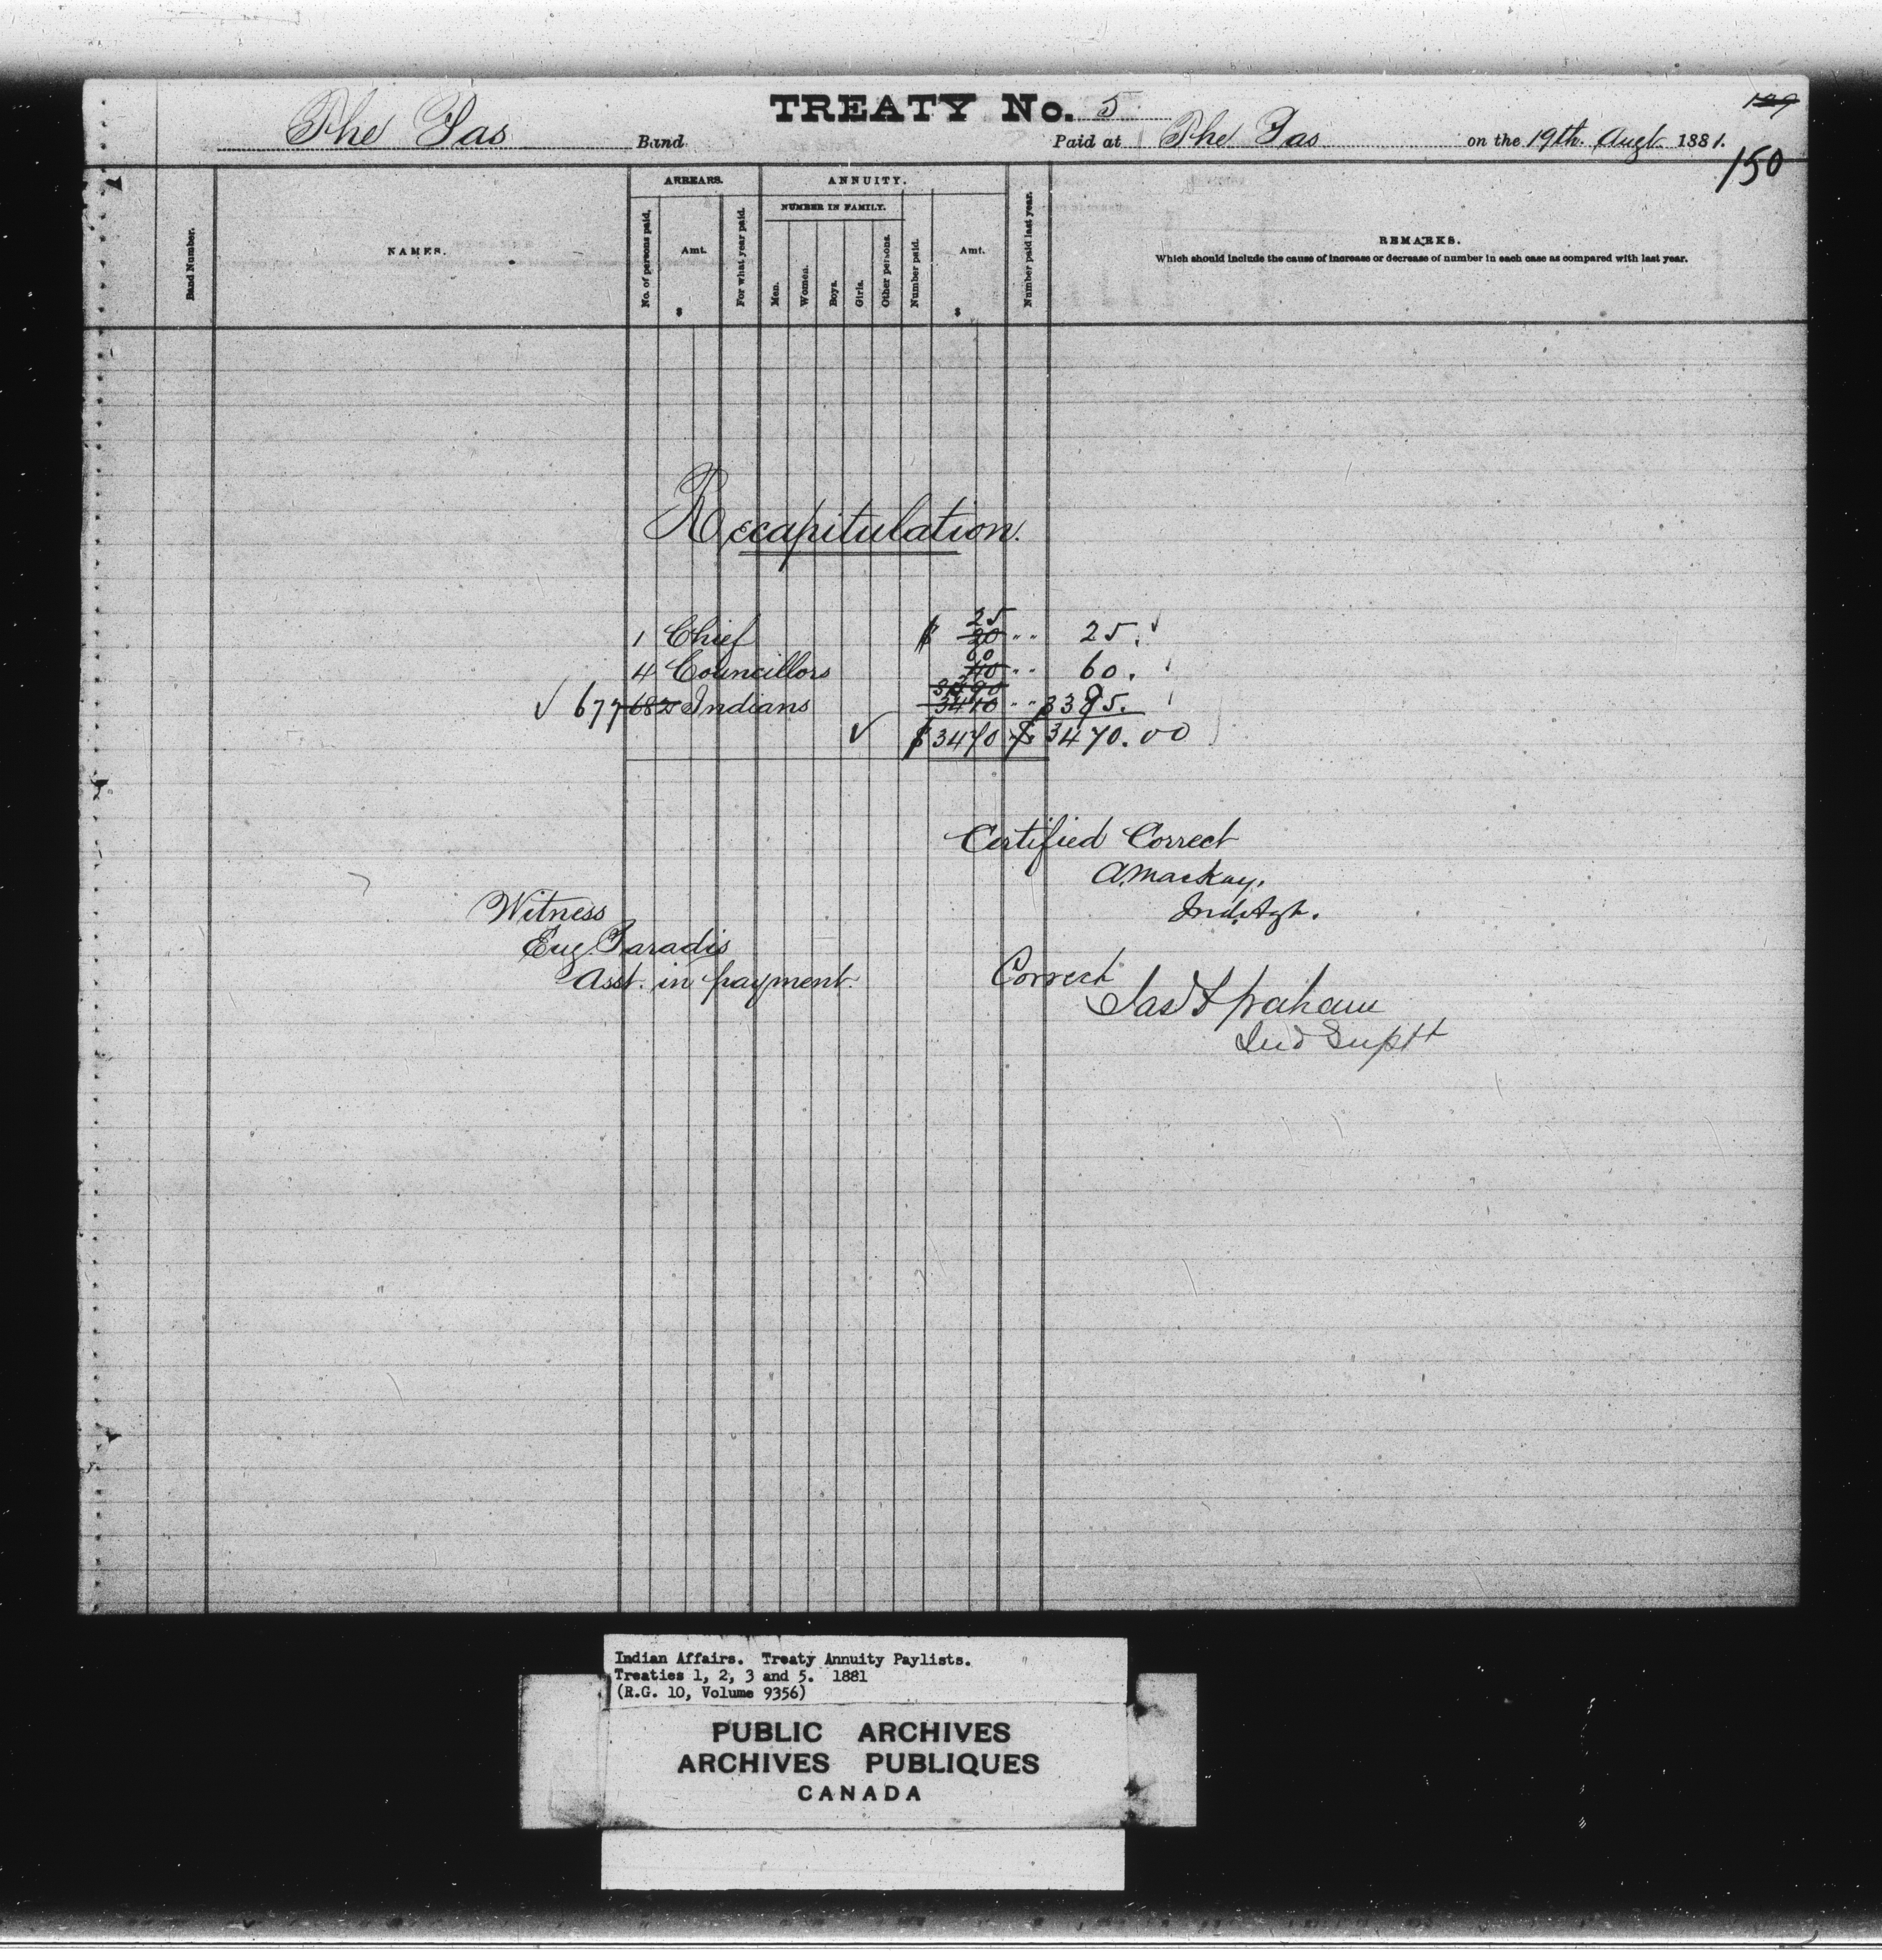 TREATY No. 5
149
The Pas Band. Paid at The Pas on the 19th. Augt. 1881.
150
Band Number.
NAMES.
ARREARS.
No. of persons paid.
Amt.
$
For what year paid.
ANNUITY.
NUMBER IN FAMILY.
Men.
Women.
Boys.
Girls.
Other persons.
Number paid.
Amt.
$
Number paid last year.
REMARKS.
Which should include the cause of increase or decrease of number in each case as compared with last year.
Recapitulation.
25
1 Chief $ 20 " " 25. ✓
60
4 Councillors 40 " " 60.
✓ 677 682 Indians 3410 " " 3385.
✓ $ 3470 $ 3470.00
Certified Correct
A. Mackay.
Ind. Agt.
Witness
Eug. Paradis
Asst. in payment.
Correct
Jas F Graham
Ind Suptt
Indian Affairs. Treaty Annuity Paylists.
Treaties 1, 2, 3 and 5. 1881
(R.G. 10, Volume 9356)
PUBLIC ARCHIVES
ARCHIVES PUBLIQUES
CANADA